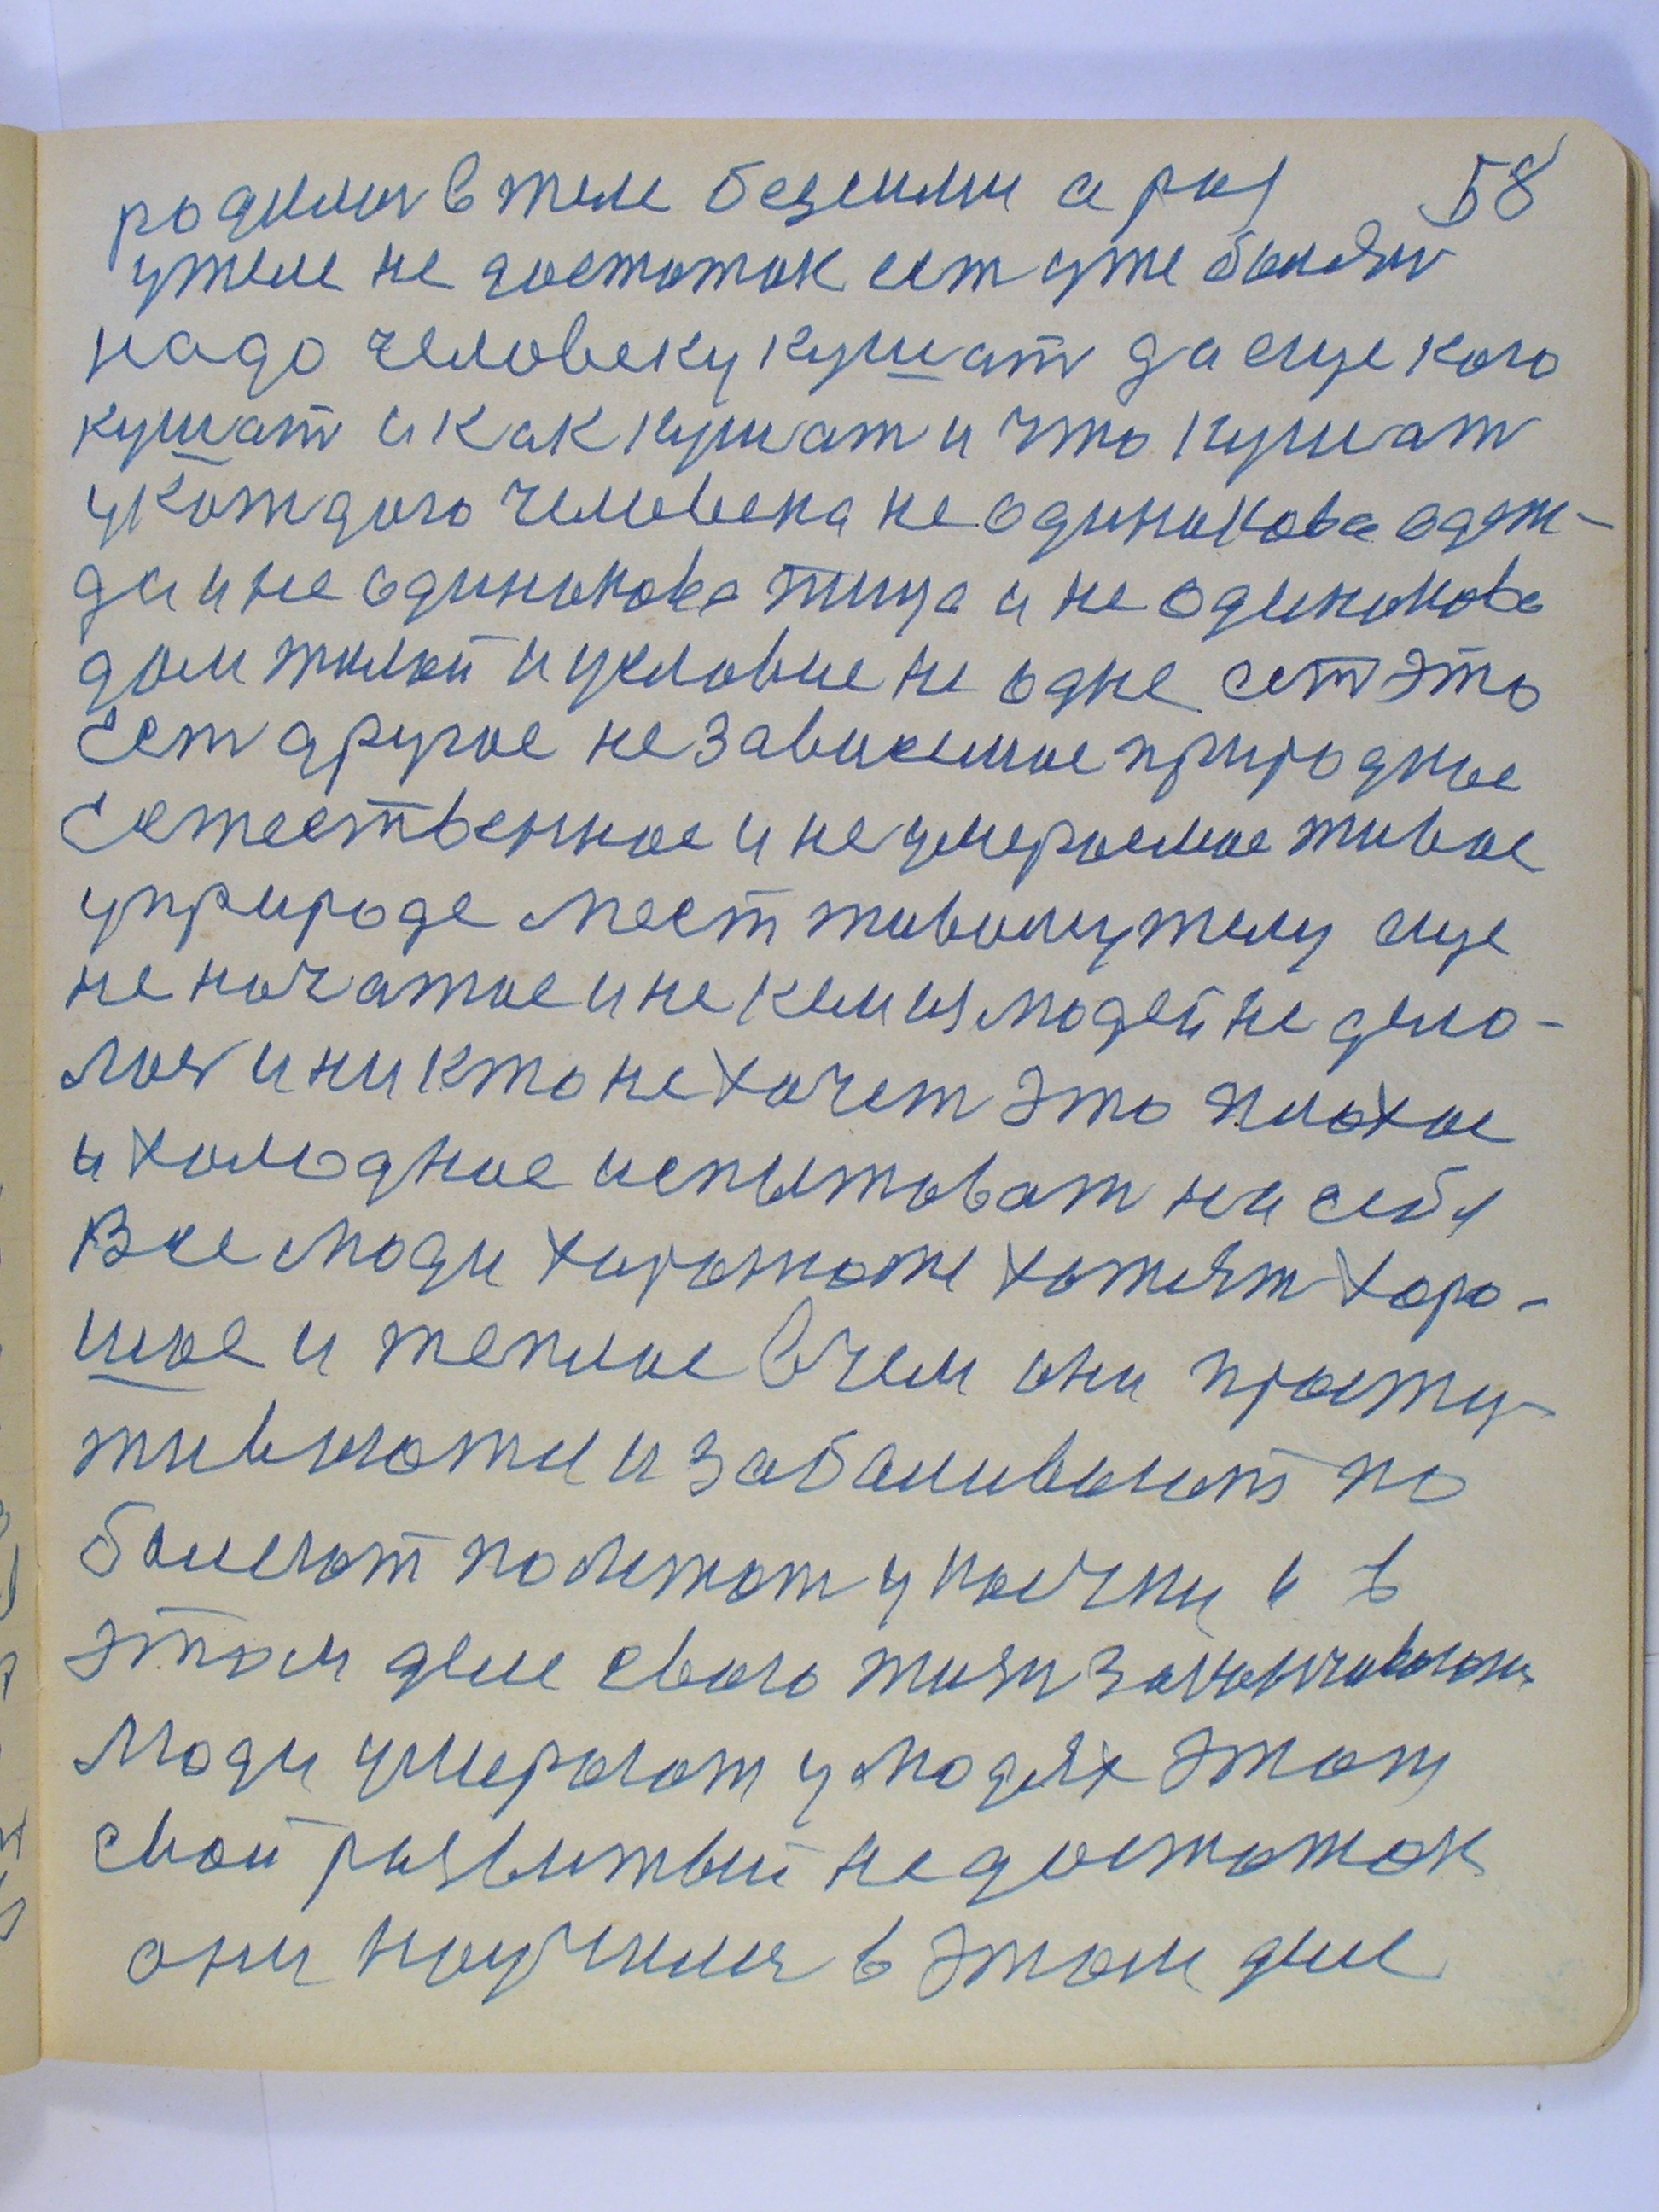 родилися в теле безсилии а раз 58
у теле не достаток ест уже болезн
надо человеку кушат да еще кого
кушат и как кушат и что кушат
у каждого человека не одинакова одеж-
да и не одинакова пища и не одинакова
дом жилой и условие не одне ест это
Ест другое не зависимое природное
Естественное и не умераемое живое
у природе мест живому телу еще
не начатое и не кем из людей не дела-
лося и ни кто не хочет это плохое
и холодное испытоват на себя
Все люди хорошо же хотят хоро-
шое и теплое в чем они просту-
живаются и заболивают по
болеют полежат у постели и в
этом деле свою жизн заканчивают
Люди умерают у людях этот
свой развитый недостаток
они научилися в этом деле